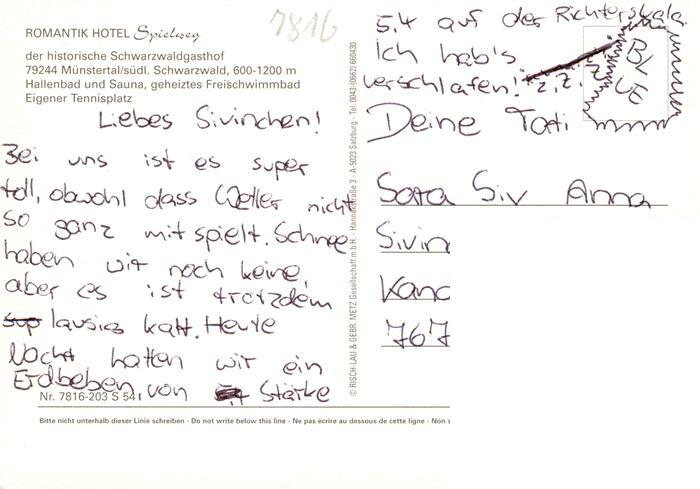 7816
ROMANTIK HOTEL Spielweg
der historische Schwarzwaldgasthof
79244 Münstertal/südl. Schwarzwald, 600-1200 m
Hallenbad und Sauna, geheiztes Freischwimmbad
Eigener Tennisplatz
Liebes Sivinchen!
Bei uns ist es super
toll, obwohl dass Wetter nicht
so ganz mitspielt. Schnee
haben wir noch keine,
aber es ist trotzdem
lausig kalt. Heute
Nacht hatten wir ein
Erdbeben von Stärke
Nr. 7816-203 S 54
Bitte nicht unterhalb dieser Linie schreiben - Do not write below this line - Ne pas écrire au dessous de cette ligne - Non s
© RISCH-LAU & GEBR. METZ Gesellschaft m.b.H. - Hannakstraße 3 - A-5023 Salzburg - Tel. 0043-(0)662) 660430
5,4 auf der Richterskala
Ich hab's
verschlafen! z.z.z.
BL
UE
Deine Tati
Sara Siv Anna
Sivin
Kand
767